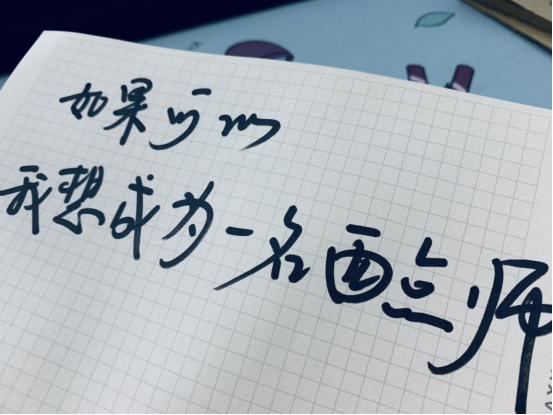 如果可以
我想成为一名面点师